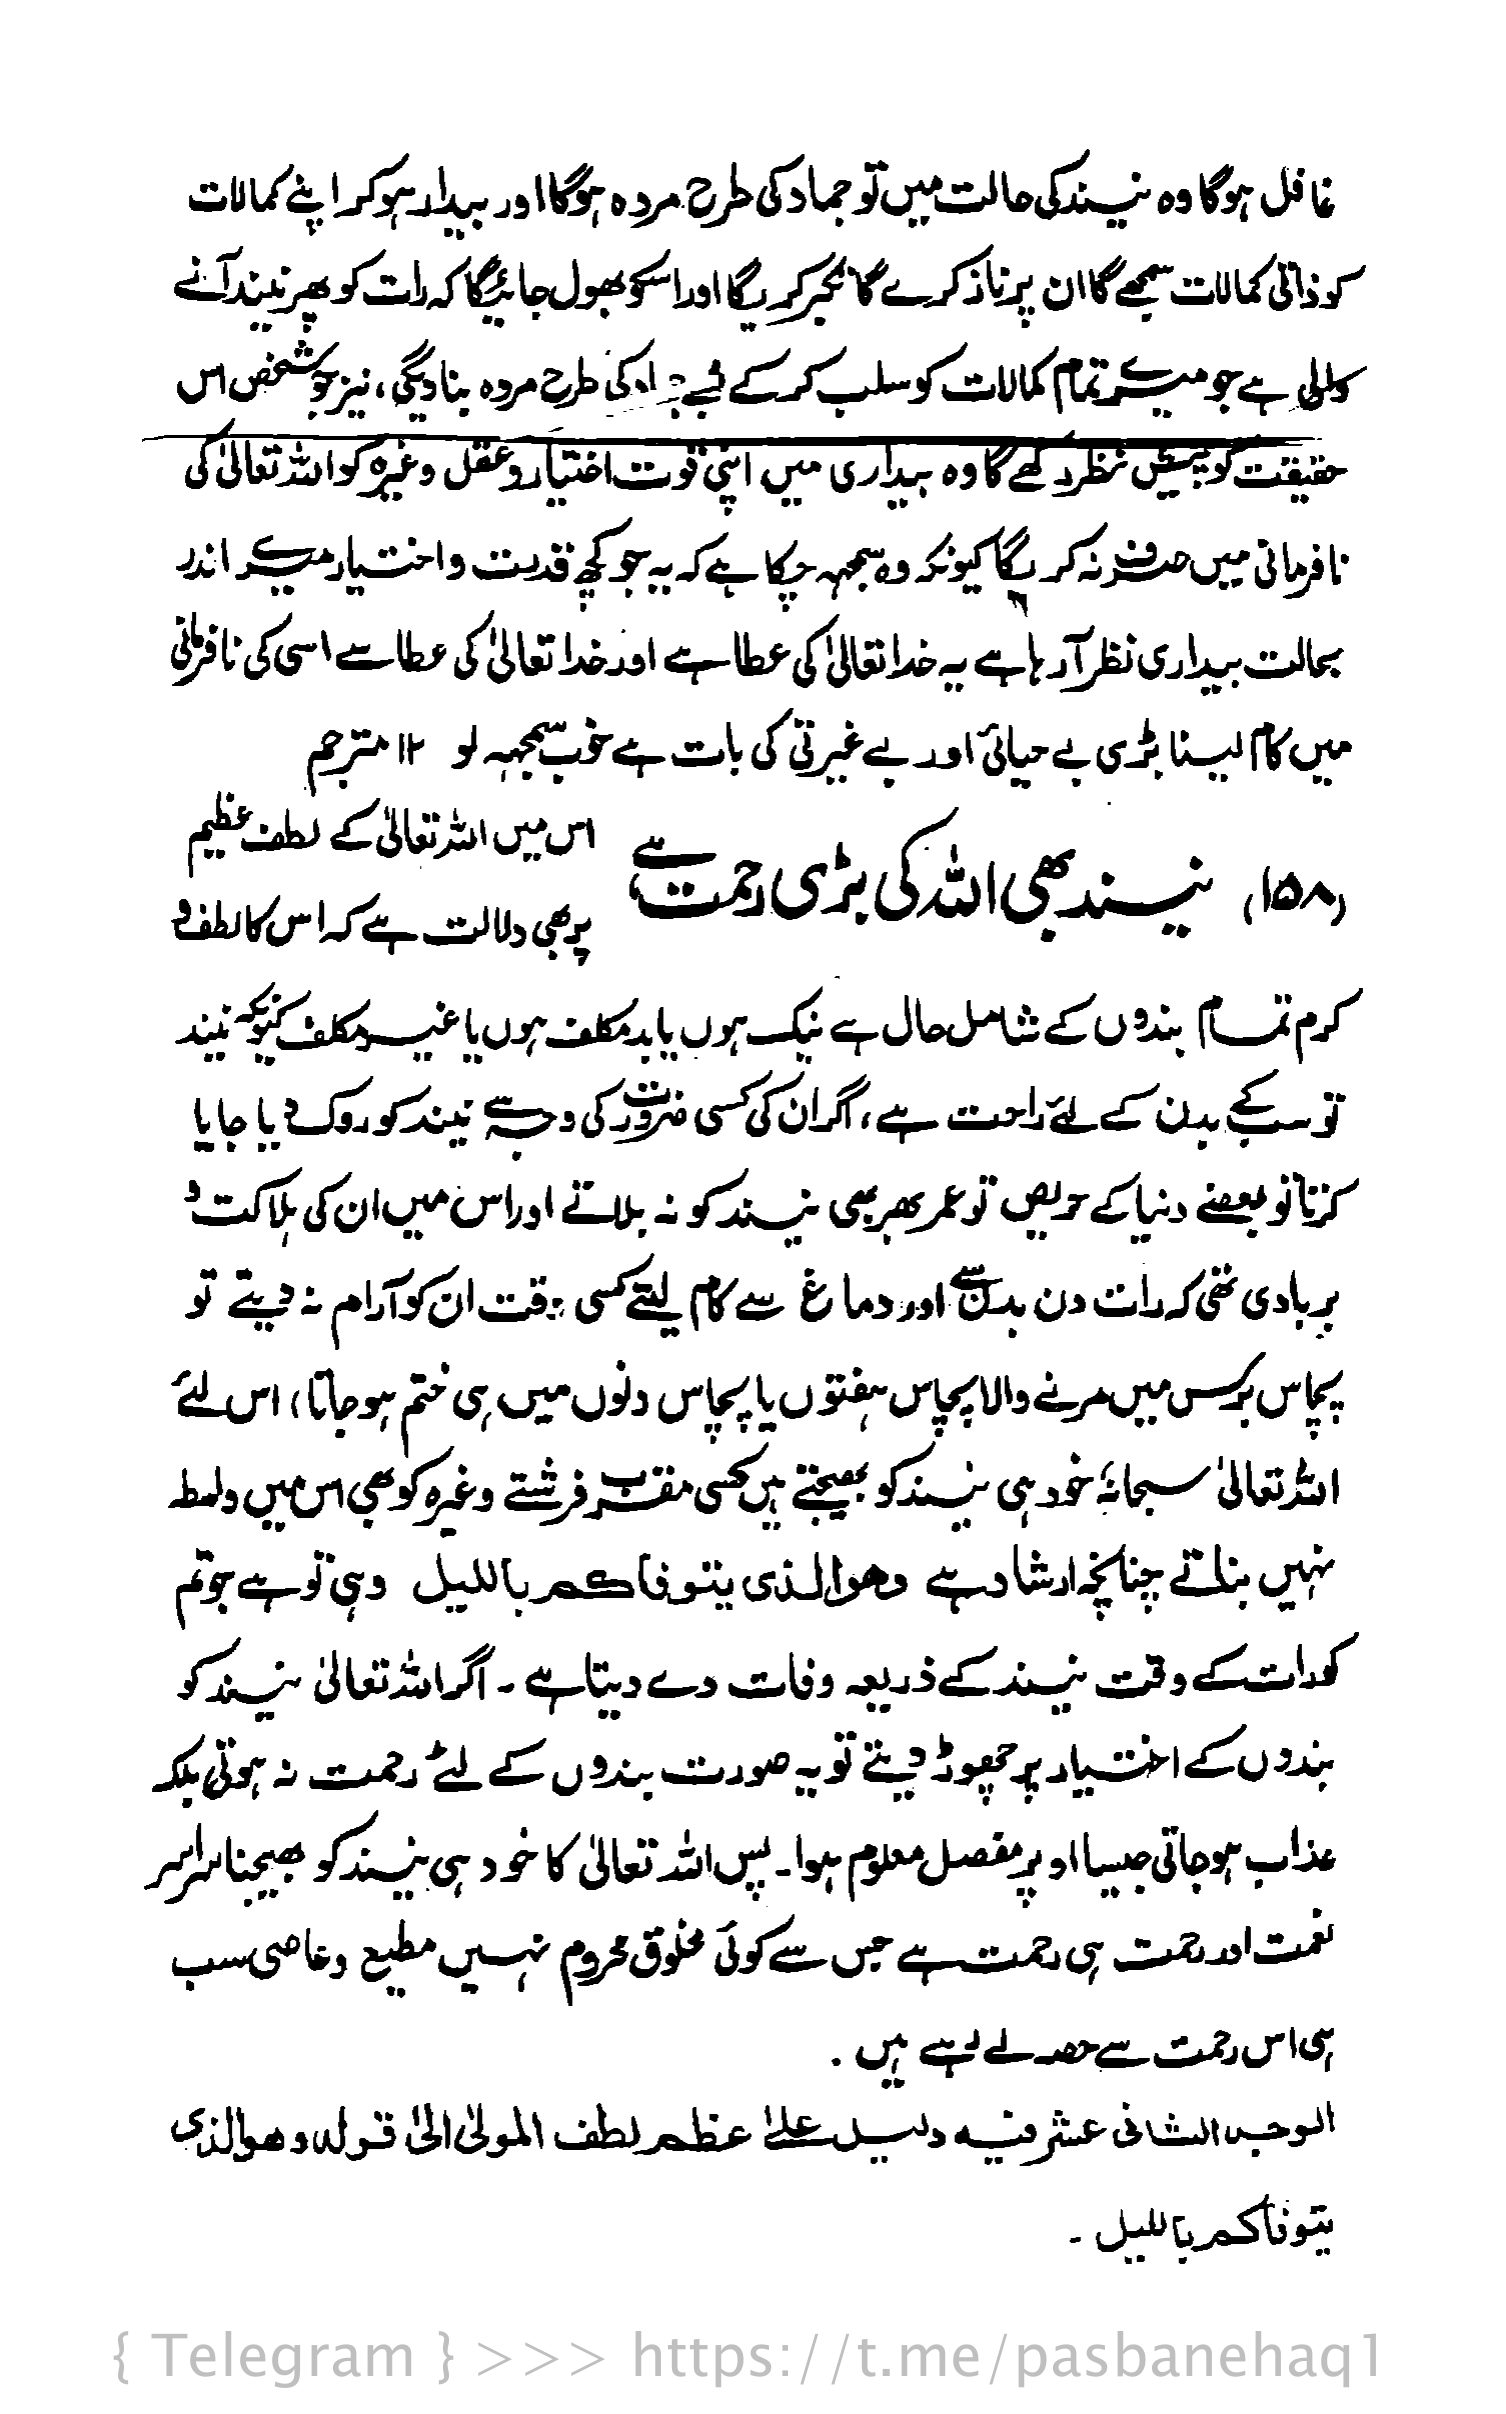 غافل ہوگا وہ نیند کی حالت میں تو جماد کی طرح مردہ ہوگا اور بیدار ہوکر اپنے کمالات
کو ذاتی کمالات سمجھے گا ان پر ناز کرے گا تکبر کریگا اور اسکو بھول جائیگا کہ رات کو پھر نیند آنے
والی ہے جو میرے تمام کمالات کو سلب کرکے مجھے جماد کی طرح مردہ بنا دیگی، نیز جو شخص اس
حقیقت کو پیش نظر رکھے گا وہ بیداری میں اپنی قوت اختیار و عقل وغیرہ کو اللہ تعالیٰ کی
نافرمانی میں صرف نہ کریگا کیونکہ وہ سمجھ چکا ہے کہ یہ جو کچھ قدرت و اختیار میرے اندر
بحالت بیداری نظر آرہا ہے یہ خدا تعالیٰ کی عطا ہے اور خدا تعالیٰ کی عطا سے اسی کی نافرمانی
میں کام لینا بڑی بے حیائی اور بے غیرتی کی بات ہے خوب سمجھ لو ۱۲ مترجم
(۱۵۸) نیند بھی اللہ کی بڑی رحمت ہے
اس میں اللہ تعالیٰ کے لطف عظیم
پر بھی دلالت ہے کہ اس کا لطف و
کرم تمام بندوں کے شامل حال ہے نیک ہوں یا بد مکلف ہوں یا غیر مکلف کیونکہ نیند
تو سب کے بدن کے لئے راحت ہے، اگر ان کی کسی ضرورت کی وجہ سے نیند کو روک دیا جایا
کرتا تو بعضے دنیا کے حریص تو عمر بھر بھی نیند کو نہ بلاتے اور اس میں ان کی ہلاکت و
بربادی تھی کہ رات دن بدن سے اور دماغ سے کام لیتے کسی وقت ان کو آرام نہ دیتے تو
پچاس برس میں مرنے والا پچاس ہفتوں یا پچاس دنوں میں ہی ختم ہوجاتا، اس لئے
اللہ تعالیٰ سبحانہٗ خود ہی نیند کو بھیجتے ہیں کسی مقرب فرشتے وغیرہ کو بھی اس میں واسطہ
نہیں بناتے چنانچہ ارشاد ہے وھوالذی یتوفاکم باللیل وہی تو ہے جو تم
کو رات کے وقت نیند کے ذریعہ وفات دے دیتا ہے ۔ اگر اللہ تعالیٰ نیند کو
بندوں کے اختیار پر چھوڑ دیتے تو یہ صورت بندوں کے لئے رحمت نہ ہوتی بلکہ
عذاب ہوجاتی جیسا اوپر مفصل معلوم ہوا ۔ پس اللہ تعالیٰ کا خود ہی نیند کو بھیجنا سراسر
نعمت اور رحمت ہی رحمت ہے جس سے کوئی مخلوق محروم نہیں مطیع و عاصی سب
ہی اس رحمت سے حصہ لے رہے ہیں .
الوجہ الثانی عشر فیہ دلیل علیٰ عظم لطف المولیٰ الیٰ قولہ وھوالذی
یتوفاکم باللیل ۔
{ Telegram } >>> https://t.me/pasbanehaq1